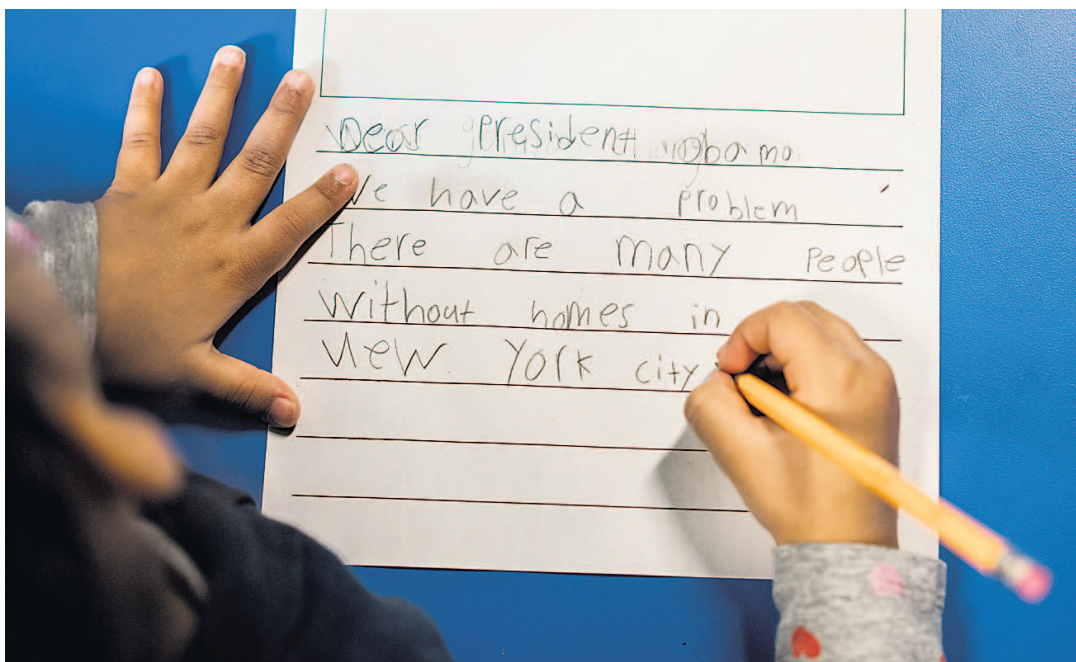 Dear President Obama
We have a problem
There are many people
without homes in
new york city